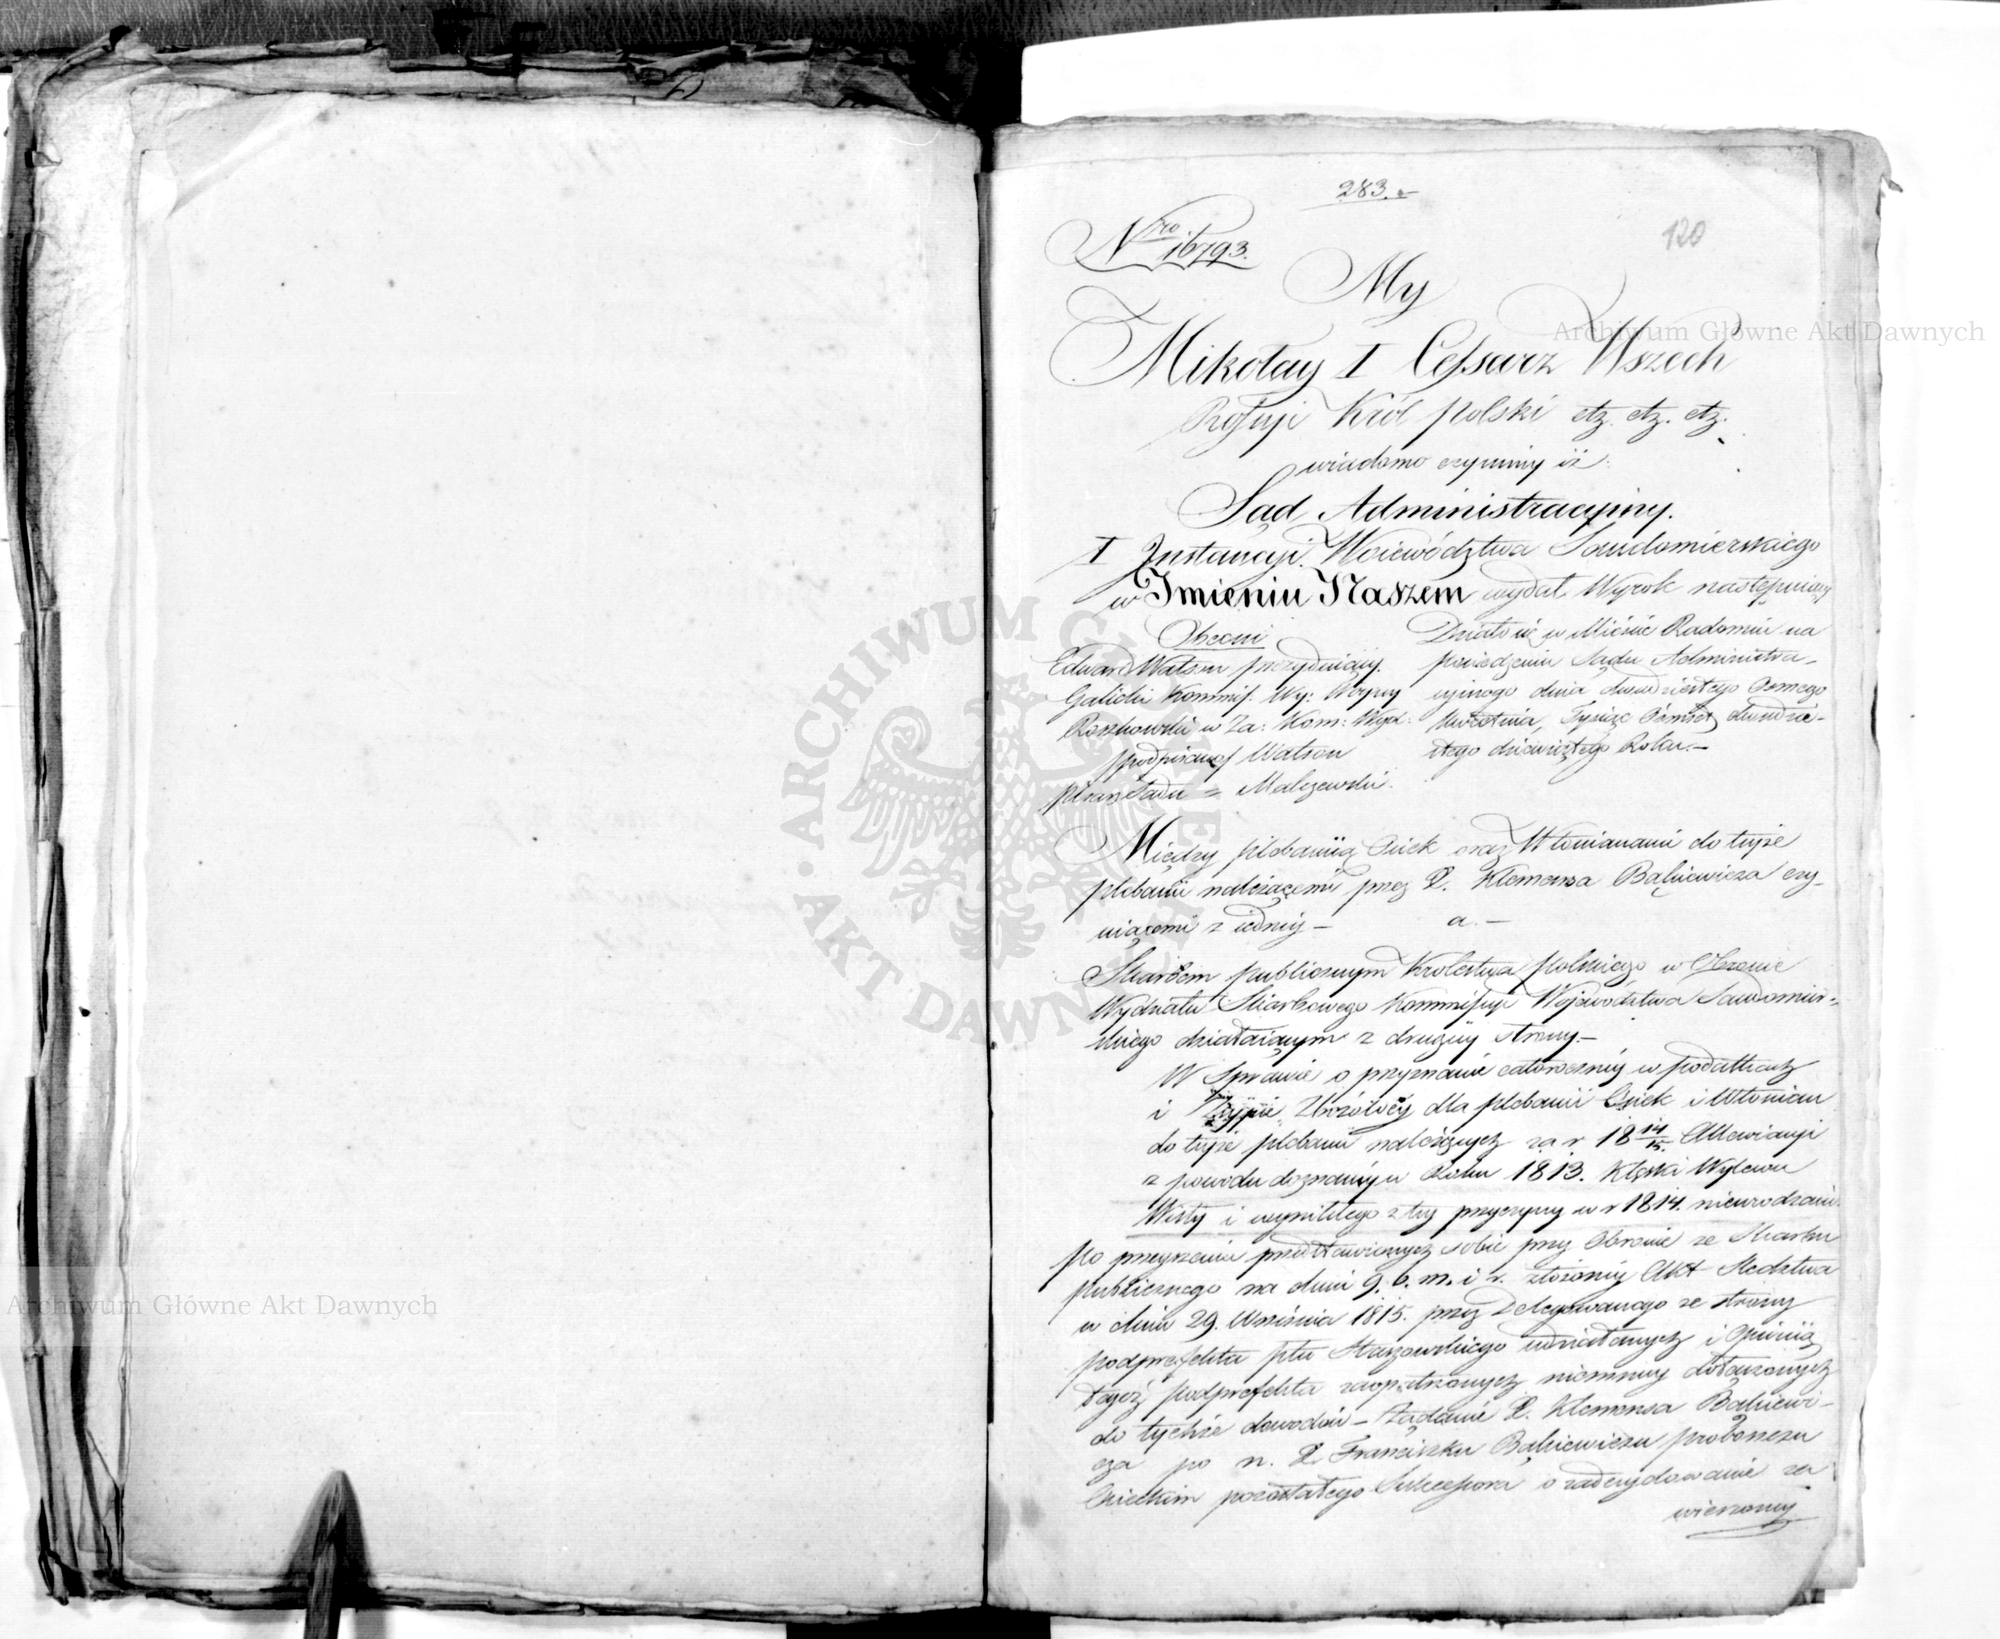 283.
Nro 16793.
120
My
Mikołay I Cessarz Wszech
Rossyi Król Polski etz. etz. etz.
wiadomo czynimy iż
Sąd Administracyiny.
I Instancyi Woiewództwa Sandomierskiego
w Imieniu Naszem wydał Wyrok następuiący
Obecni
Edward Watson prezyduiący.
Galicki Kommiss. Wy:
Roszkowski w Za: Kom: Wyd:
podpisano/ Watson
Pisarz Sadu = Malczewski.
Działo się w Mieście Radomiu na
posiedzeniu Sądu Administra-
cyinego dnia dwudziestego Osmego
Kwietnia, Tysiąc Ośmset dwudzie-
stego dziewiątego Roku.-
Między plebaniią Osiek oraz Włościanami do tejże
plebanii należącemi przez X. Klemensa Bąkiewicza czy-
niącemi z iedney - a. -
Skarbem publicznym Krolestwa Polskiego w Obronie
Wydziału Skarbowego Kommissyi Wojewodztwa Sandomier-
skiego działaiącym z drugiey strony.-
W Sprawie o przyznanie całoroczney w podatkach
i Zsypie Zbożowey dla plebanii Osiek i Włościan
do tejże plebanii należących za r 18 14/15. Allewiacyi
z powodu doznaney w Roku 1813. Klęski Wylewu
Wisły i wynikłego z tey przyczyny w r 1814. nieurodzaiu.
Po przeyrzeniu przedstawionych sobie przy Obronie ze Skarbu
publicznego na dniu 9. b. m. i r. złożoney Akt Sledztwa
w dniu 29. Września 1815. przez Delegowanego ze strony
podprefekta ptu Staszowskiego udziałanych i Opiniią
tegoż podprefekta zaopatrzonych niemniey dołączonych
do tychże dowodów - Żądanie X. Klemensa Bąkiewi-
cza po n. X. Franciszku Bąkiewiczu proboszczu
Osieckim pozostałego Sukcessora o zadecydowanie za
wieszoney
Archiwum Główne Akt Dawnych
Archiwum Główne Akt Dawnych
ARCHIWUM GŁÓWNE AKT DAWNYCH